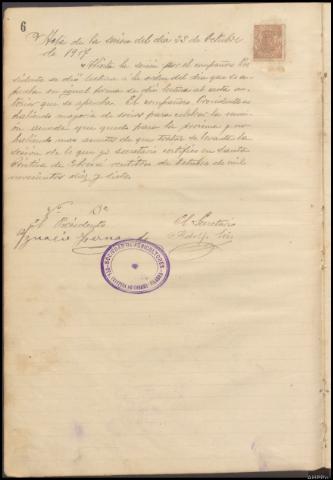 6
Acta de la sesión del dia 23 de Octubre
de 1917
Abierta la sesión por el compañero Pre
sidente se dió lectura a la orden del dia que se a-
prueba en igual forma se dió lectura al acta an-
terior que se aprueba. El compañero Presidente no
habiendo mayoria de socios para celebrar la reu-
nion acuerda que quede para la proxima y no
habiendo mas asuntos de que tratar se levanta la
sesión de lo que yo secretario certifico en Santa
de Octubre de mil
novecientos diez y siete
Vº Bº
El Presidente
El Secretario
Ignacio
Adolfo
SOCIEDAD DE AGRICULTORES